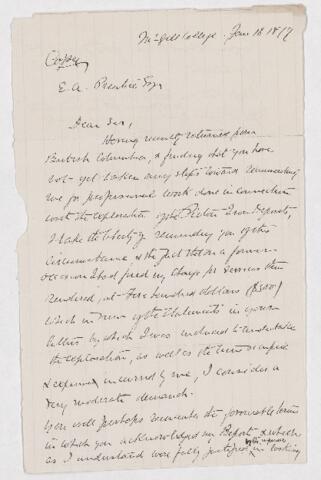 McGill College. Jan 18 1877
Copy
E. A. Prentice Esq
Dear Sir,
Having recently returned from
British Columbia, & finding that you have
not yet taken any steps toward remunerating
me for professional work done in connection
with the exploration of the Iron Deposits,
I take the liberty of reminding you of the
circumstance & the fact that on a former
occasion I had fixed my charge for services then
rendered, at five hundred dollars ($500)
which in view of the statements in your
letters by which I was induced to undertake
the exploration, as well as the time occupied
& expense incurred by me, I consider a
very moderate demand.
You will perhaps remember the favorable terms
in which you acknowledged my Report & which
as I understood were fully justified in looking